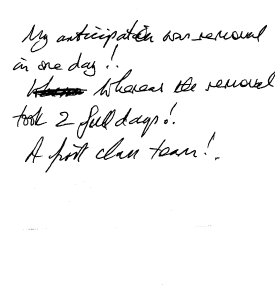 My anticipation was removal
in one day!!
Whereas the removal
took 2 full days!.
A first class team!.